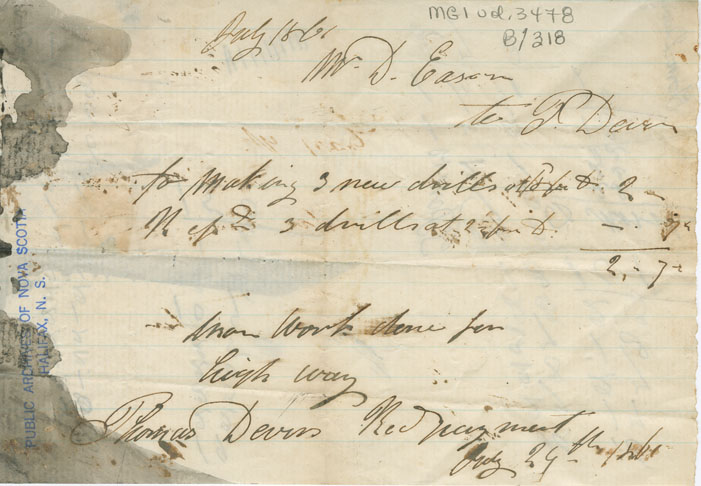 MG1 vol. 3478
B/318
July 1861
Mr D. Eason
to T. Deven
to Making 3 new drills at 2 –
Repd 3 drills at – . 7
2 , – 7
Iron work done for
high way
Thomas Deven Recd payment
July 29th 1861
PUBLIC ARCHIVES OF NOVA SCOTIA
HALIFAX, N. S.